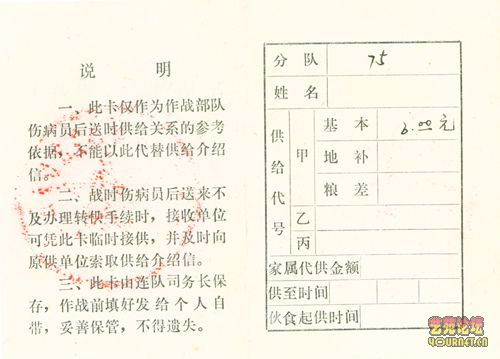 说 明
一、此卡仅作为作战部队
伤病员后送时供给关系的参考
依据,不能以此代替供给介绍
信。
二、战时伤病员后送来不
及办理转供手续时,接收单位
可凭此卡临时接供,并及时向
原供单位索取供给介绍信。
三、此卡由连队司务长保
存,作战前填好发给个人自
带,妥善保管,不得遗失。
分队 75
姓名
供给代号
甲
基本 6.00元
地补
粮差
乙
丙
家属代供金额
供至时间
伙食起供时间
艺苑论坛
4YOURNET.CN